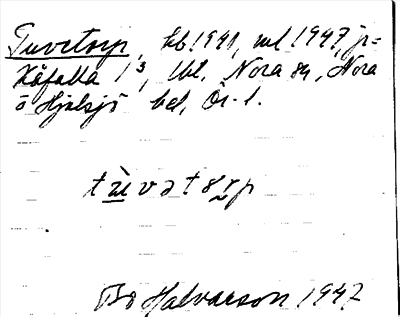 Tuvetorp, hb 1941, ml 1947, j=
Käfalla 1³, lht. Nora sn, Nora
o Hjulsjö bd, Ör. l.
tu̲vətɵrp
Bo Halvarson 1947